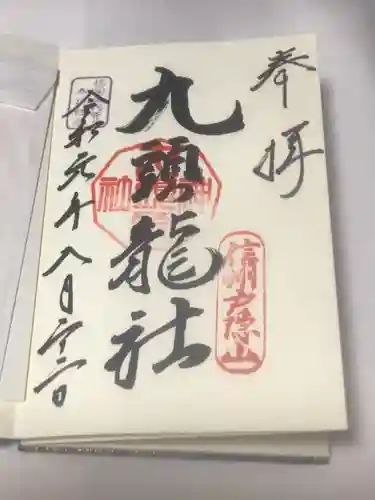 奉拝
信州戸隠山
九頭龍社
令和元年八月廿二日